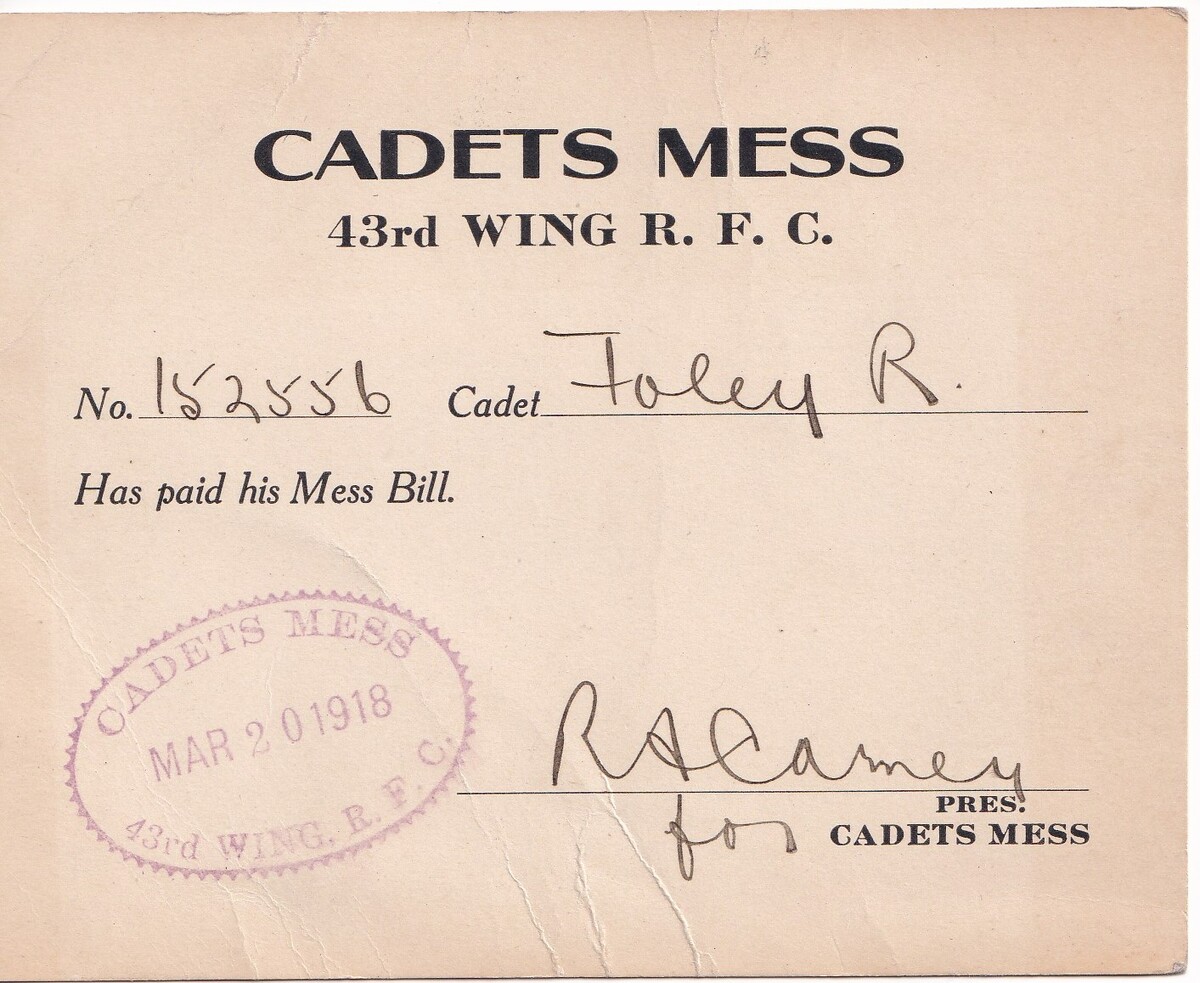 CADETS MESS
43rd WING R. F. C.
No. 152556 Cadet Foley R.
Has paid his Mess Bill.
CADETS MESS
MAR 20 1918
43rd WING. R. F. C.
R A Carney
for PRES.
CADETS MESS